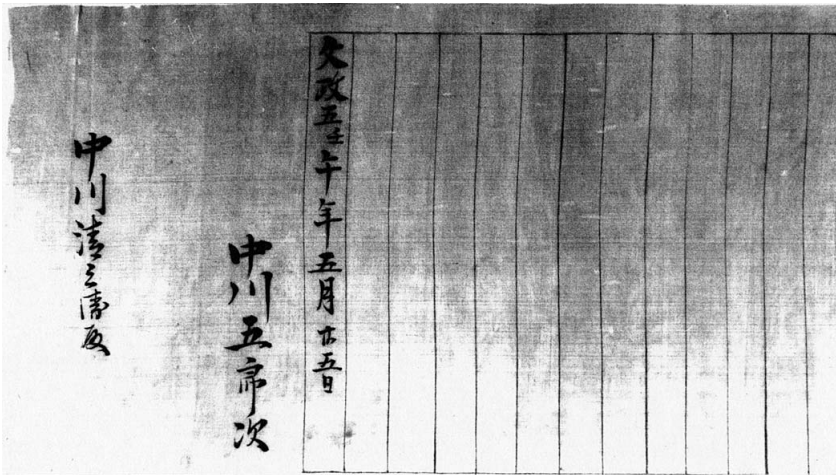 文政五壬午年五月廿五日
中川五郎次
中川清三郎殿